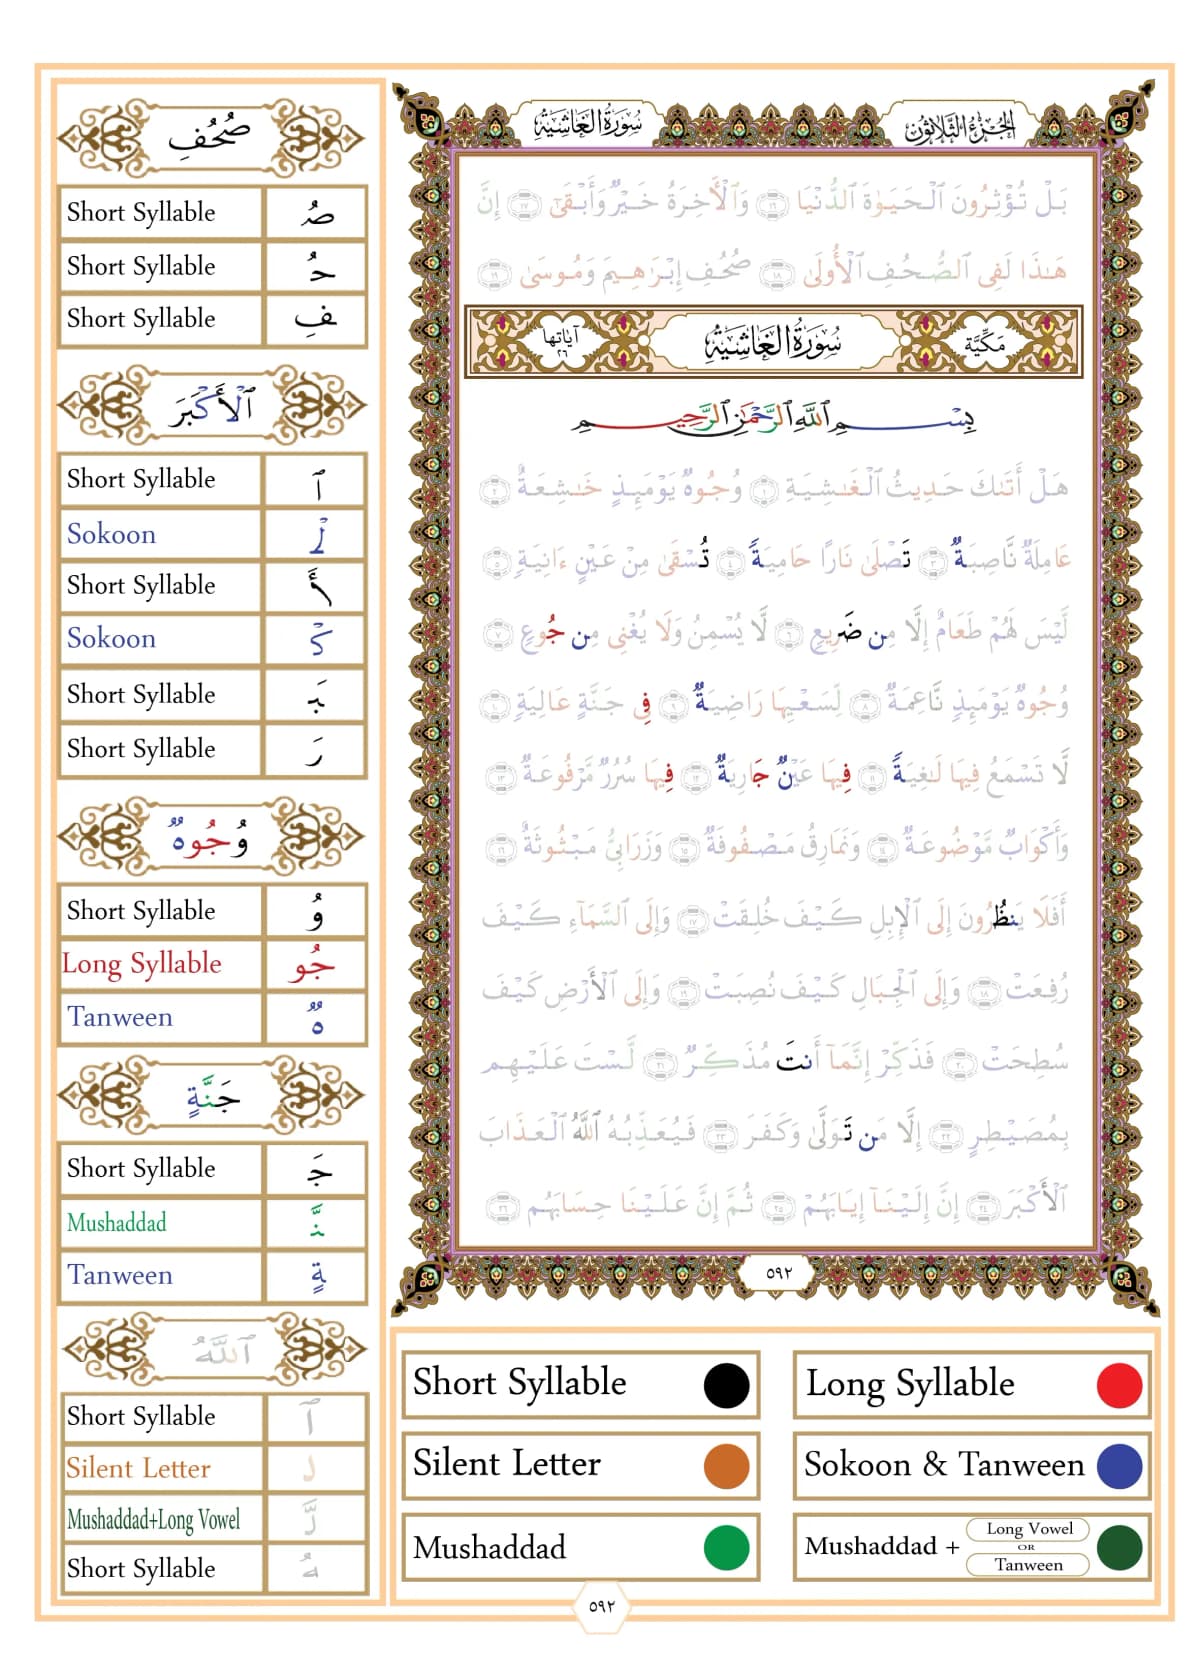 سُورَةُ الغَاشِيَةِ
الجُزْءُ الثَّلَاثُونَ
بَلْ تُؤْثِرُونَ ٱلْحَيَوٰةَ ٱلدُّنْيَا ١٦ وَٱلْأَخِرَةُ خَيْرٌ وَأَبْقَىٰٓ ١٧ إِنَّ
هَٰذَا لَفِى ٱلصُّحُفِ ٱلْأُولَىٰ ١٨ صُحُفِ إِبْرَٰهِيمَ وَمُوسَىٰ ١٩
مَكِّيَّة
سُورَةُ الغَاشِيَةِ
آيَاتها ٢٦
بِسْمِ ٱللَّهِ ٱلرَّحْمَٰنِ ٱلرَّحِيمِ
هَلْ أَتَىٰكَ حَدِيثُ ٱلْغَٰشِيَةِ ١ وُجُوهٌ يَوْمَئِذٍ خَٰشِعَةٌ ٢
عَامِلَةٌ نَّاصِبَةٌ ٣ تَصْلَىٰ نَارًا حَامِيَةً ٤ تُسْقَىٰ مِنْ عَيْنٍ ءَانِيَةٍ ٥
لَّيْسَ لَهُمْ طَعَامٌ إِلَّا مِن ضَرِيعٍ ٦ لَّا يُسْمِنُ وَلَا يُغْنِى مِن جُوعٍ ٧
وُجُوهٌ يَوْمَئِذٍ نَّاعِمَةٌ ٨ لِّسَعْيِهَا رَاضِيَةٌ ٩ فِى جَنَّةٍ عَالِيَةٍ ١٠
لَّا تَسْمَعُ فِيهَا لَٰغِيَةً ١١ فِيهَا عَيْنٌ جَارِيَةٌ ١٢ فِيهَا سُرُرٌ مَّرْفُوعَةٌ ١٣
وَأَكْوَابٌ مَّوْضُوعَةٌ ١٤ وَنَمَارِقُ مَصْفُوفَةٌ ١٥ وَزَرَابِىُّ مَبْثُوثَةٌ ١٦
أَفَلَا يَنظُرُونَ إِلَى ٱلْإِبِلِ كَيْفَ خُلِقَتْ ١٧ وَإِلَى ٱلسَّمَآءِ كَيْفَ
رُفِعَتْ ١٨ وَإِلَى ٱلْجِبَالِ كَيْفَ نُصِبَتْ ١٩ وَإِلَى ٱلْأَرْضِ كَيْفَ
سُطِحَتْ ٢٠ فَذَكِّرْ إِنَّمَآ أَنتَ مُذَكِّرٌ ٢١ لَّسْتَ عَلَيْهِم
بِمُصَيْطِرٍ ٢٢ إِلَّا مَن تَوَلَّىٰ وَكَفَرَ ٢٣ فَيُعَذِّبُهُ ٱللَّهُ ٱلْعَذَابَ
ٱلْأَكْبَرَ ٢٤ إِنَّ إِلَيْنَآ إِيَابَهُمْ ٢٥ ثُمَّ إِنَّ عَلَيْنَا حِسَابَهُم ٢٦
٥٩٢
صُحُفِ
Short Syllable صُ
Short Syllable حُ
Short Syllable فِ
ٱلْأَكْبَرَ
Short Syllable ٱ
Sokoon لْ
Short Syllable أَ
Sokoon كْ
Short Syllable بَ
Short Syllable رَ
وُجُوهٌ
Short Syllable وُ
Long Syllable جُو
Tanween هٌ
جَنَّةٍ
Short Syllable جَ
Mushaddad نَّ
Tanween ةٍ
ٱللَّهُ
Short Syllable ٱ
Silent Letter ل
Mushaddad+Long Vowel لَّ
Short Syllable هُ
Short Syllable
Long Syllable
Silent Letter
Sokoon & Tanween
Mushaddad
Mushaddad + Long Vowel OR Tanween
٥٩٢